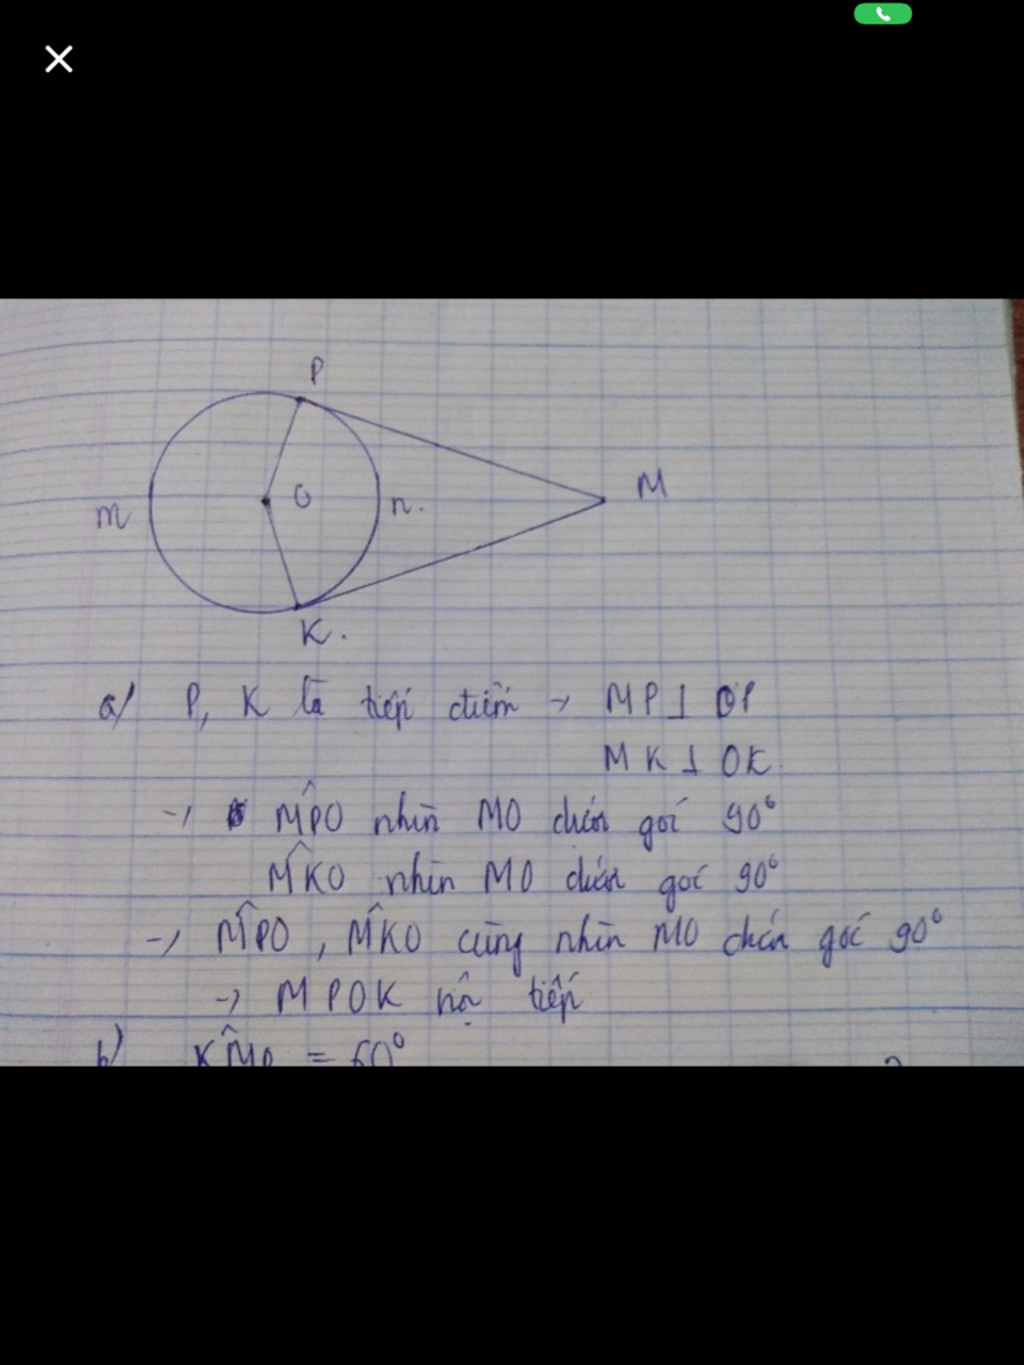 P
m
O
n.
M
K.
a/ P, K là tiếp điểm → MP ⊥ OP
MK ⊥ OK
→ MP̂O nhìn MO dưới góc 90°
MK̂O nhìn MO dưới góc 90°
→ MP̂O, MK̂O cùng nhìn MO dưới góc 90°
→ MPOK nội tiếp
b) KM̂P = 60°